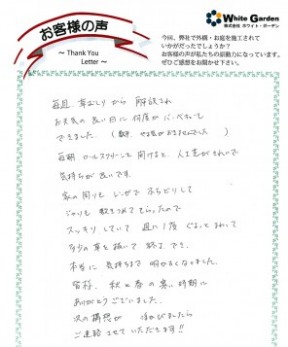 お客様の声
〜 Thank You
Letter 〜
White Garden
株式会社 ホワイト・ガーデン
今回、弊社で外構・お庭を施工されて
いかがだったでしょうか？
お客様の声が私たちの原動力になっています。
ぜひご感想をお聞かせ下さい。
毎週 草むしりから 解放され
お天気の良い日に 何度か バーベキュー
できました。
毎朝 ロールスクリーンを 開けると
気持ちが 良いです。
家の周りも レンガで ふちどりして
じゃりも 敷きつめて もらったので
スッキリしていて 週に1度 ぐるっと まわって
多少の草を 抜いて 終了 でき、
本当に 気持ちまで 明るくなりました。
皆様、秋と春の 暑い時期に
ありがとうございました。
次の 構想が 浮かびましたら
ご連絡 させて いただきます!!